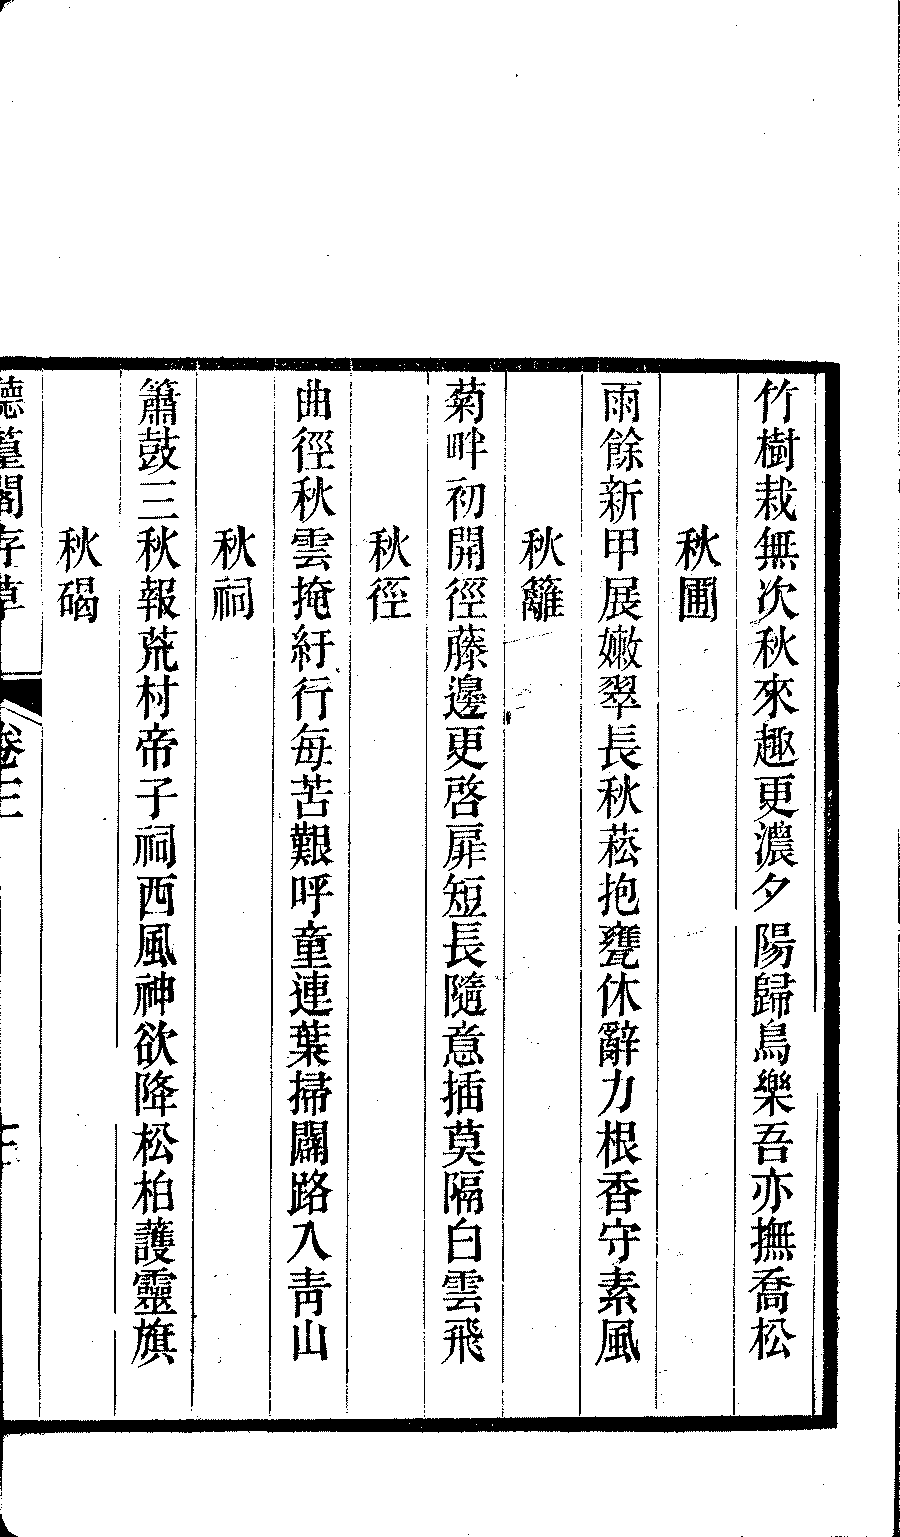 竹樹栽無次秋來趣更濃夕陽歸鳥樂吾亦撫喬松
秋圃
雨餘新甲展嫩翠長秋菘抱甕休辭力根香守素風
秋籬
菊畔初開徑藤邊更啓扉短長隨意插莫隔白雲飛
秋徑
曲徑秋雲掩紆行每苦艱呼童連葉掃闢路入靑山
秋祠
簫鼓三秋報荒村帝子祠西風神欲降松柏護靈旗
秋碣
聽篁閣存草
卷三